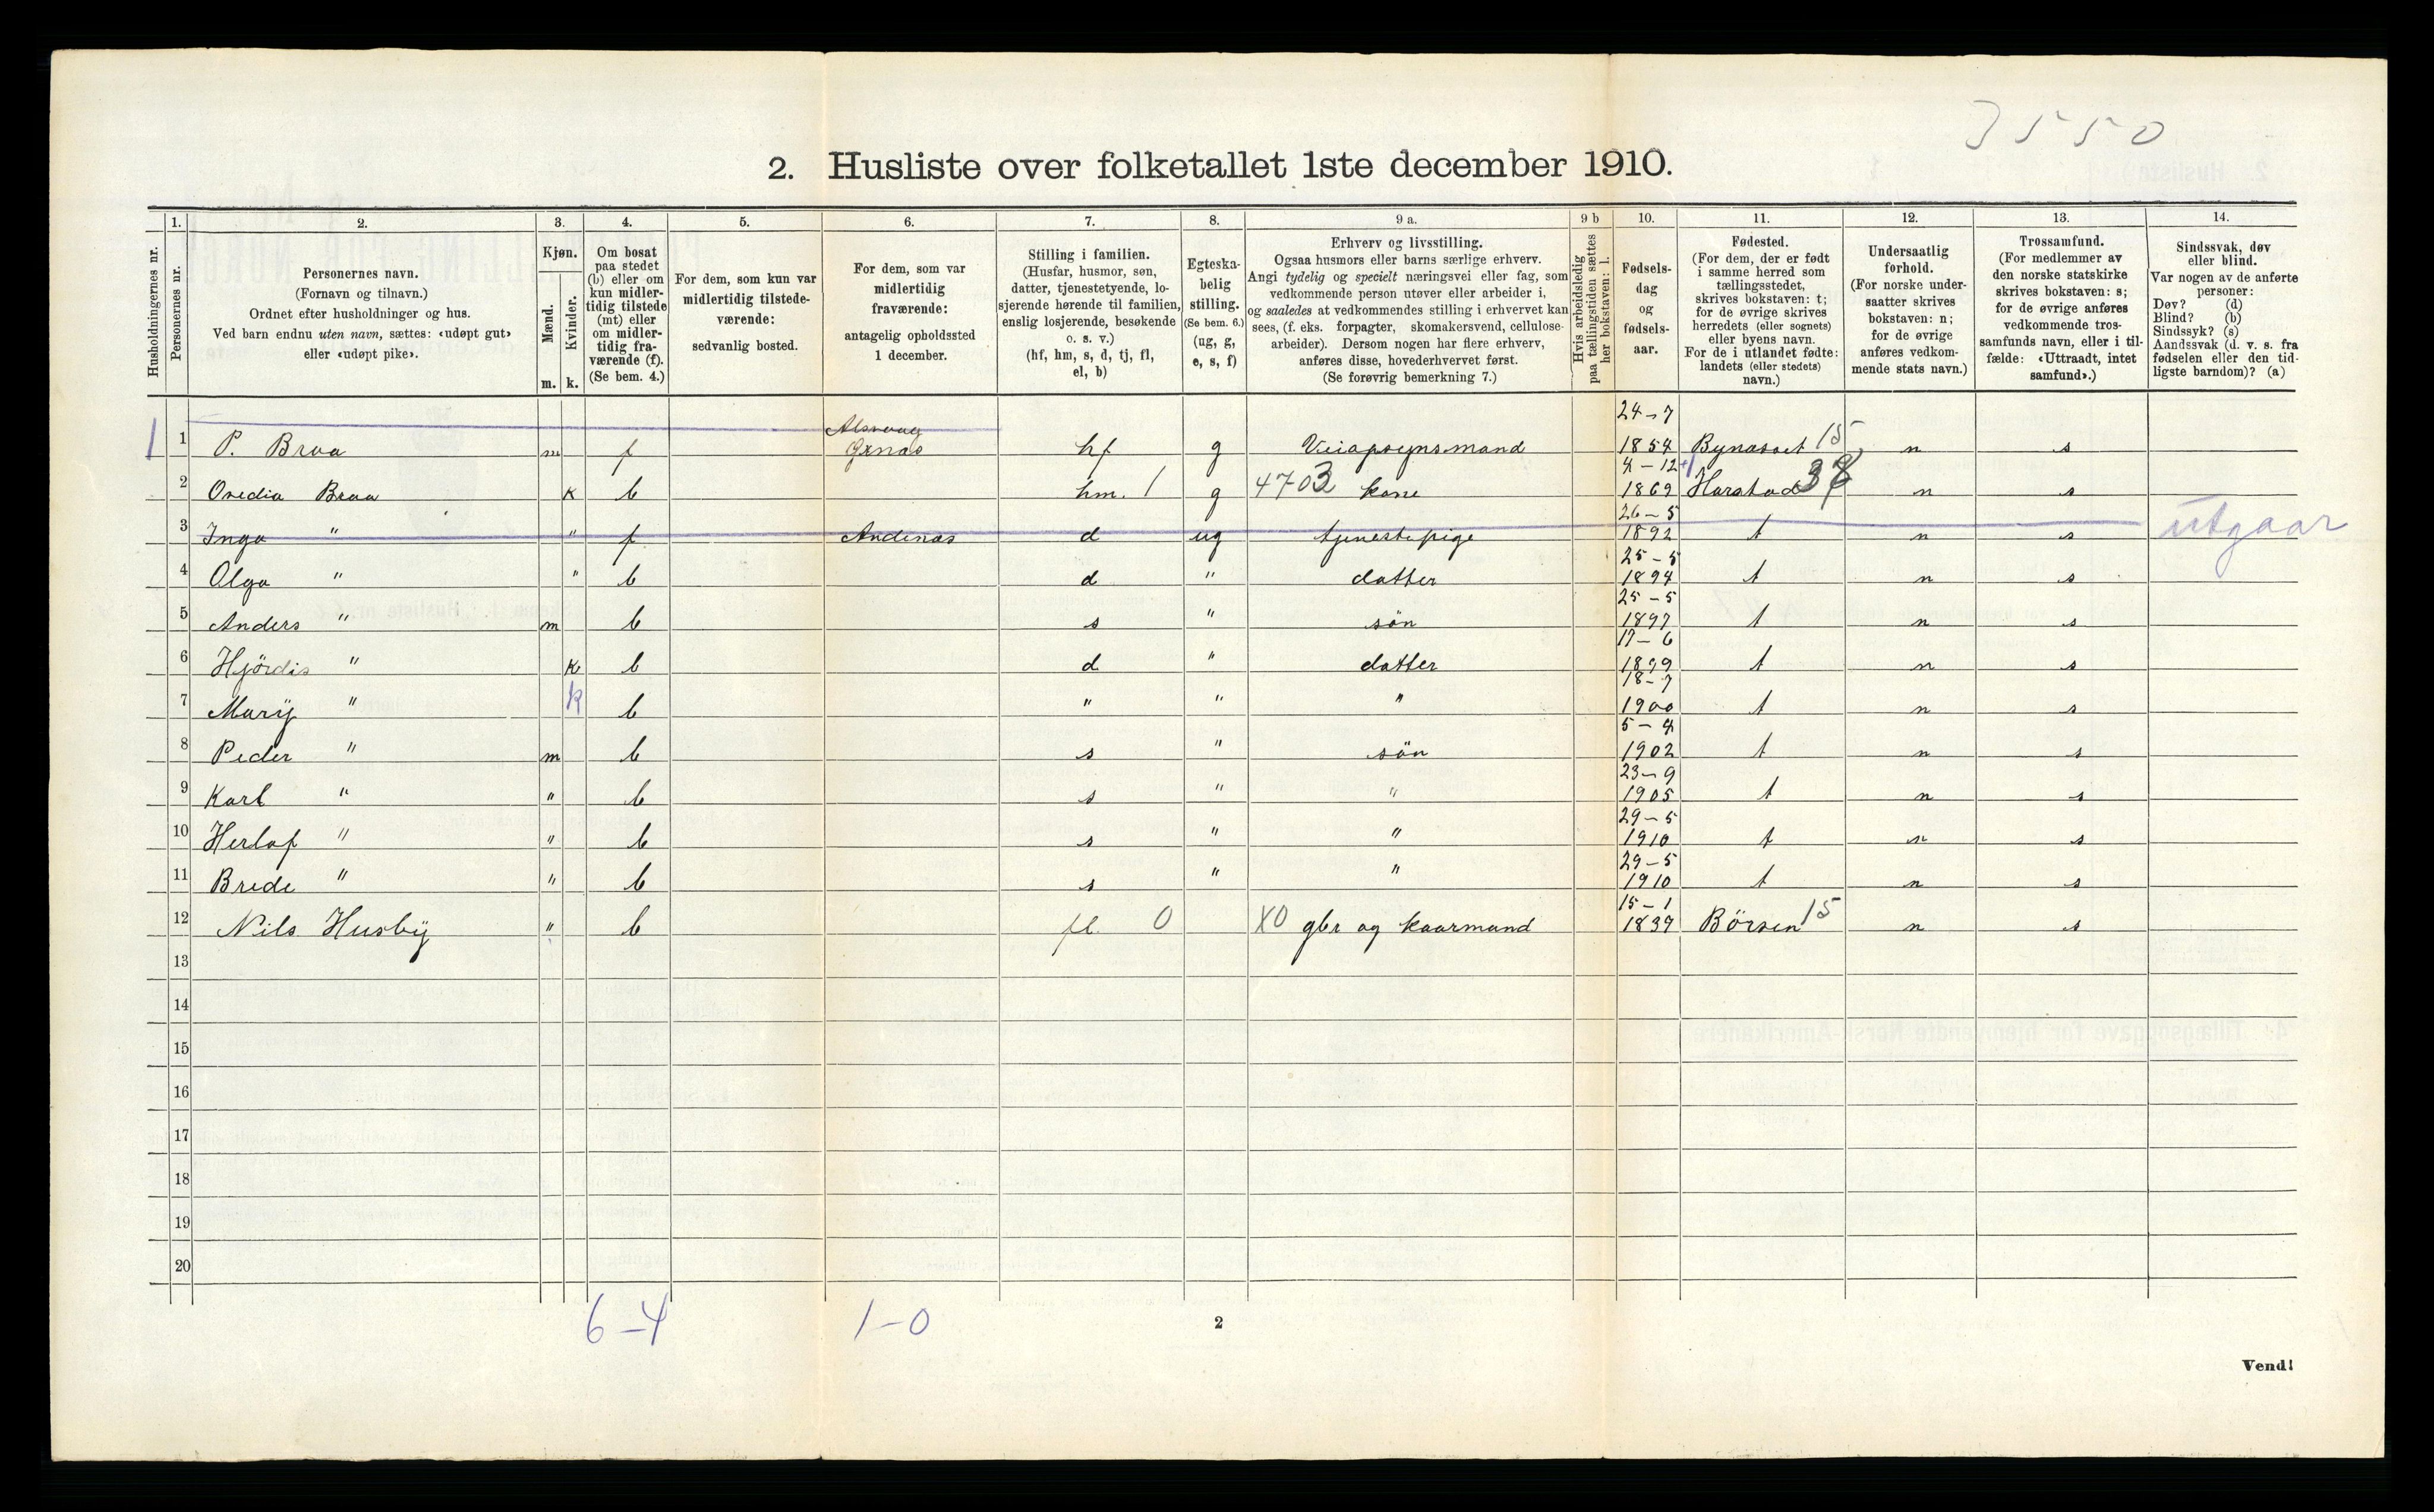 3550
2. Husliste over folketallet 1ste december 1910.
1. 2. 3. 4. 5. 6. 7. 8. 9 a. 9 b 10. 11. 12. 13. 14.
Husholdningernes nr.
Personernes nr.
Personernes navn.
(Fornavn og tilnavn.)
Ordnet efter husholdninger og hus.
Ved barn endnu uten navn, sættes: «udøpt gut»
eller «udøpt pike».
Kjøn.
Mænd.
Kvinder.
m. k.
Om bosat
paa stedet
(b) eller om
kun midler-
tidig tilstede
(mt) eller
om midler-
tidig fra-
værende (f).
(Se bem. 4.)
For dem, som kun var
midlertidig tilstede-
værende:
sedvanlig bosted.
For dem, som var
midlertidig
fraværende:
antagelig opholdssted
1 december.
Stilling i familien.
(Husfar, husmor, søn,
datter, tjenestetyende, lo-
sjerende hørende til familien,
enslig losjerende, besøkende
o. s. v.)
(hf, hm, s, d, tj, fl,
el, b)
Egteska-
belig
stilling.
(Se bem. 6.)
(ug, g,
e, s, f)
Erhverv og livsstilling.
Ogsaa husmors eller barns særlige erhverv.
Angi tydelig og specielt næringsvei eller fag, som
vedkommende person utøver eller arbeider i,
og saaledes at vedkommendes stilling i erhvervet kan
sees, (f. eks. forpagter, skomakersvend, cellulose-
arbeider). Dersom nogen har flere erhverv,
anføres disse, hovederhvervet først.
(Se forøvrig bemerkning 7.)
Hvis arbeidsledig
paa tællingstiden sættes
her bokstaven: l.
Fødsels-
dag
og
fødsels-
aar.
Fødested.
(For dem, der er født
i samme herred som
tællingsstedet,
skrives bokstaven: t;
for de øvrige skrives
herredets (eller sognets)
eller byens navn.
For de i utlandet fødte:
landets (eller stedets)
navn.)
Undersaatlig
forhold.
(For norske under-
saatter skrives
bokstaven: n;
for de øvrige
anføres vedkom-
mende stats navn.)
Trossamfund.
(For medlemmer av
den norske statskirke
skrives bokstaven: s;
for de øvrige anføres
vedkommende tros-
samfunds navn, eller i til-
fælde: «Uttraadt, intet
samfund».)
Sindssvak, døv
eller blind.
Var nogen av de anførte
personer:
Døv? (d)
Blind? (b)
Sindssyk? (s)
Aandssvak (d. v. s. fra
fødselen eller den tid-
ligste barndom)? (a)
Alsvaag 24-7
1 1 P. Braa m f hf g Veiapsynsmand 1854 Bynæsset 15 n s
4-12
2 Ovedia Braa k b hm. 1 g 4703 kone 1869 Harstad n s
26-5
3 Inga " " f Andenæs d ug tjenestepige 1892 t n s utgaar
25-5
4 Olga " " b d " datter 1894 t n s
25-5
5 Anders " m b s " sön 1897 t n s
17-6
6 Hjördis " k b d " datter 1899 t n s
18-7
7 Marij " k b " " " 1900 t n s
5-4
8 Peder " m b s " sön 1902 t n s
23-9
9 Karl " " b s " " 1905 t n s
29-5
10 Herlof " " b s " " 1910 t n s
29-5
11 Brede " " b s " " 1910 t n s
15-1
12 Nils Husbÿ " b fl. 0 X0 gbr og kaarmand 1839 Börsen 15 n s
13
14
15
16
17
18
19
20
6-4 1-0
2
Vend!